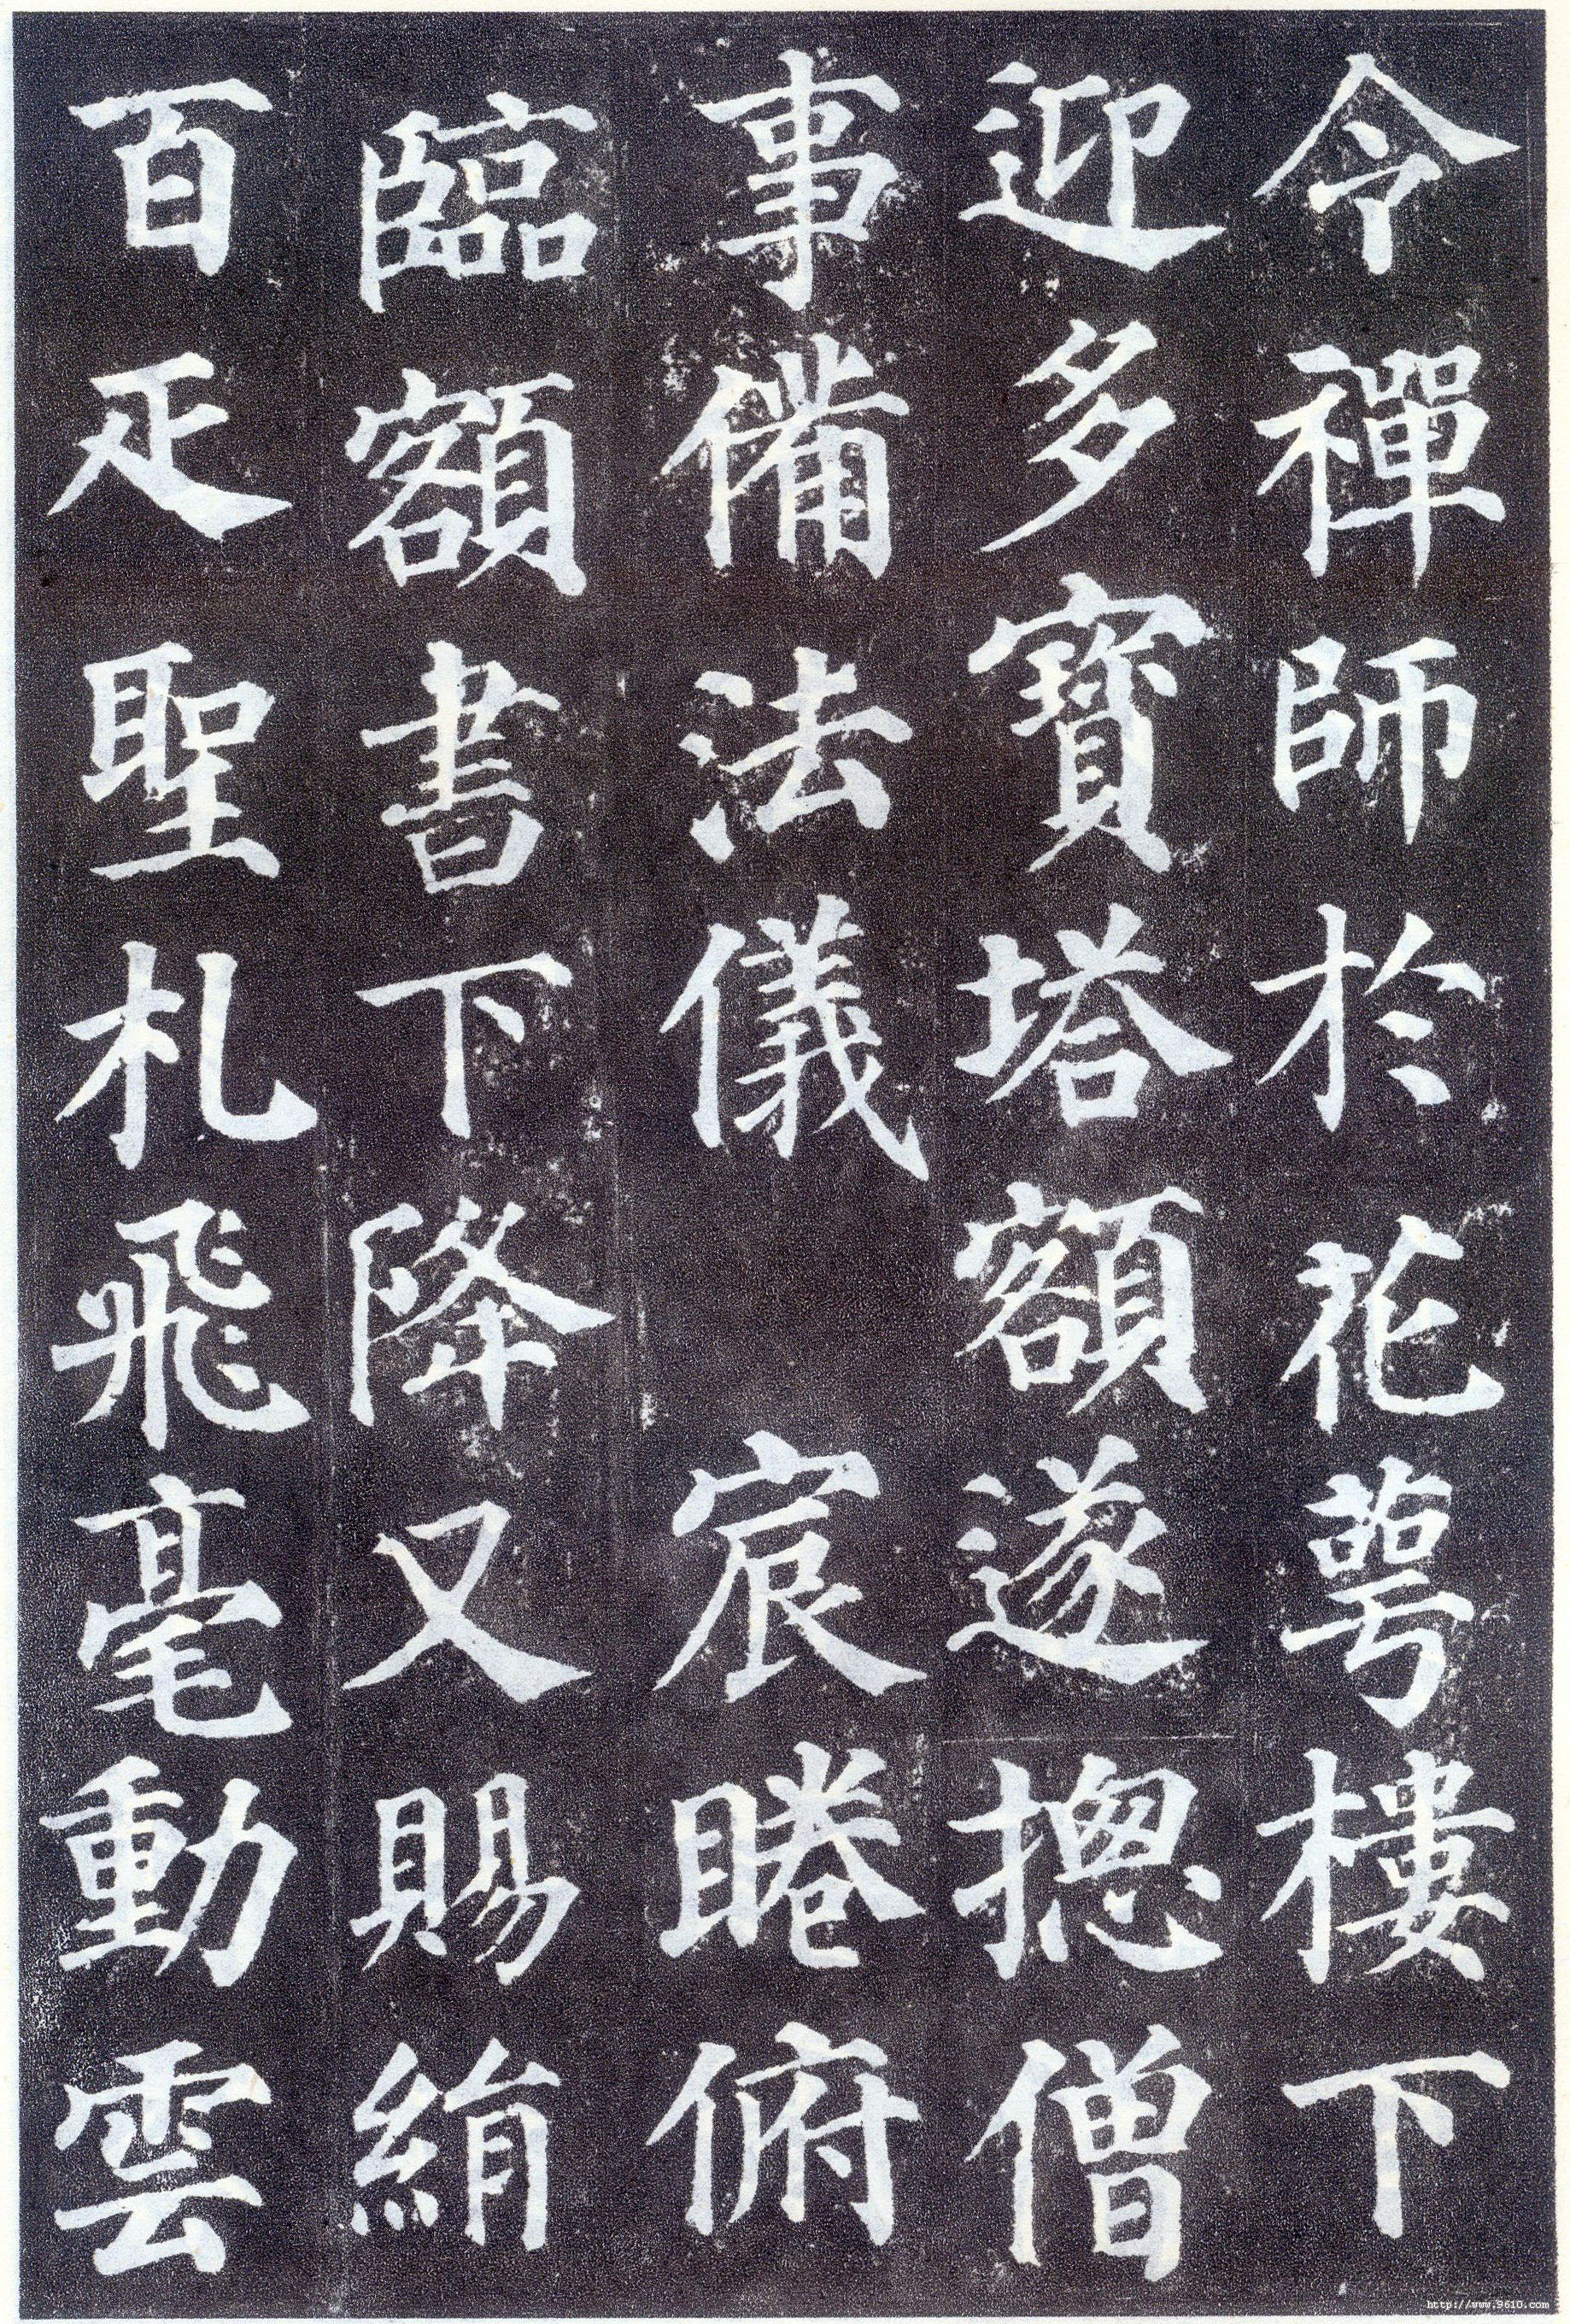 令禪師於花萼樓下
迎多寶塔額遂摠僧
事備法儀 宸睠俯
臨額書下降又賜絹
百疋聖札飛毫動雲
http://www.9610.com